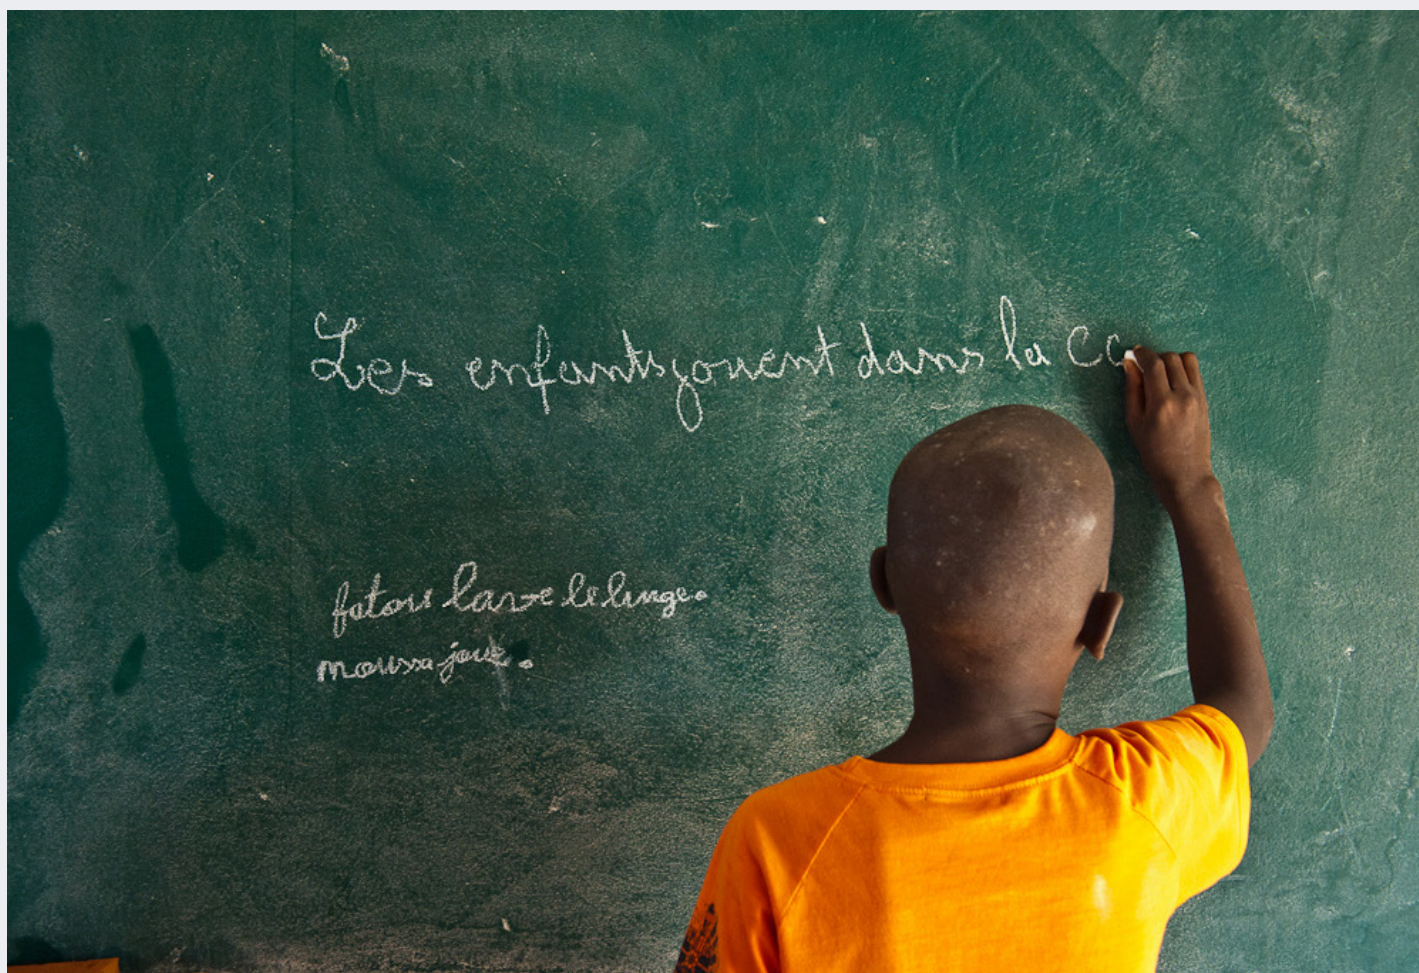 Les enfants jouent dans la
fatou lave le linge.
moussa joue.